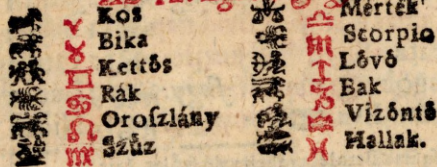 Kos
Bika
Kettős
Rák
Oroſzlány
Szűz
Mérték
Scorpio
Lövő
Bak
Vizöntő
Hallak.